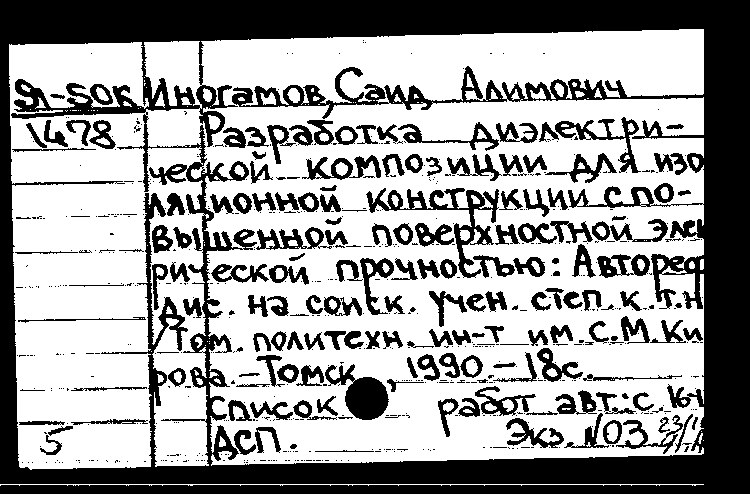 Я-50К Иногамов, Саид Алимович
1478 Разработка диэлектри-
ческой композиции для изо
ляционной конструкции с по-
вышенной поверхностной элек
рической прочностью: Автореф
дис. на соиск. учен. степ. к.т.н
/ Том. политехн. ин-т им. С.М. Ки
рова. - Томск, 1990. - 18с.
Список работ авт.: с. 16-1
5 ДСП. Экз. №03